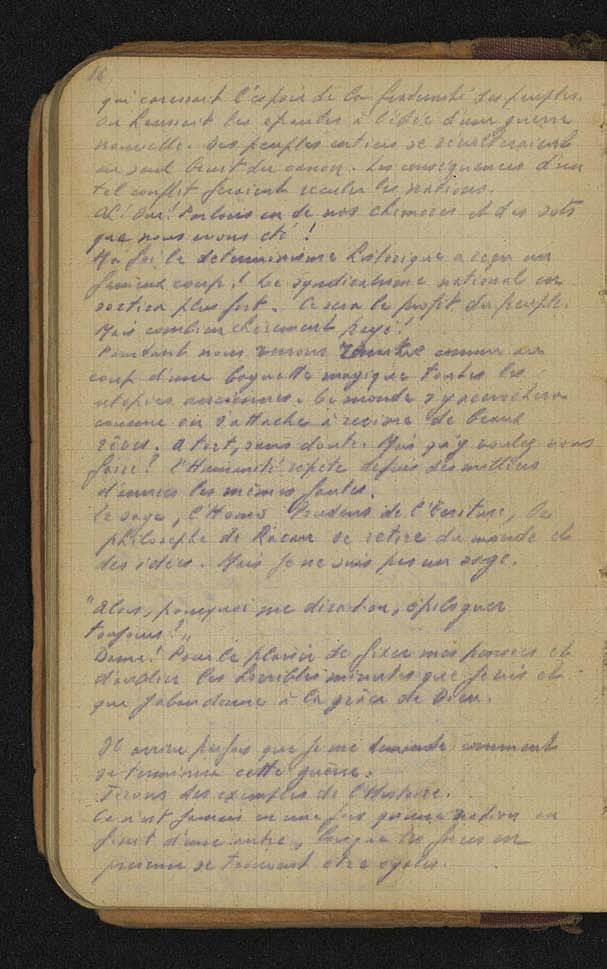 16
qui caressait l'espoir de la fraternité des peuples.
On haussait les épaules à l'idée d'une guerre
nouvelle. Des peuples entiers se révolteraient
au seul bruit du canon. Les conséquences d'un
tel conflit feraient reculer les nations.
Ah! Oui! Parlons en de nos chimères et des sots
que nous avons été!
Ma foi le déterminisme historique a reçu un
fameux coup! Le syndicalisme national en
sortira plus fort. Ce sera le profit du peuple.
Mais combien chèrement payé!
Pourtant nous verrons renaître comme au
coup d'une baguette magique toutes les
utopies anciennes. Le monde s'y accrochera
comme on s'attache à de beaux
rêves. A tort, sans doute. Mais qu'y voulez vous
faire! l'Humanité répète depuis des milliers
d'années les mêmes fautes.
Le sage, l'Homo Prudens de l'Ecriture, le
philosophe de Racan se retire du monde et
des idées. Mais je ne suis pas un sage.
"Alors, pourquoi me dira-t-on, épiloguer
toujours?"
Dame! Pour le plaisir de fixer mes pensées et
d'oublier les terribles minutes que je vis et
que j'abandonne à la grâce de Dieu.
Il arrive parfois que je me demande comment
se terminera cette guerre.
Tirons des exemples de l'Histoire.
Ce n'est jamais en une fois qu'une nation en
finit d'une autre, lorsque les forces en
présence se trouvent être égales.